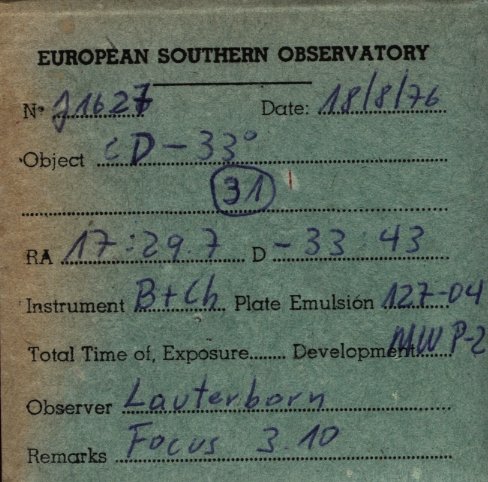 EUROPEAN SOUTHERN OBSERVATORY
No J1627 Date: 18/8/76
Object CD-33°
31
RA 17:29.7 D -33:43
Instrument B+Ch. Plate Emulsion 127-04
Total Time of, Exposure....... Development MWP-2
Observer Lauterborn
Remarks Focus 3.10